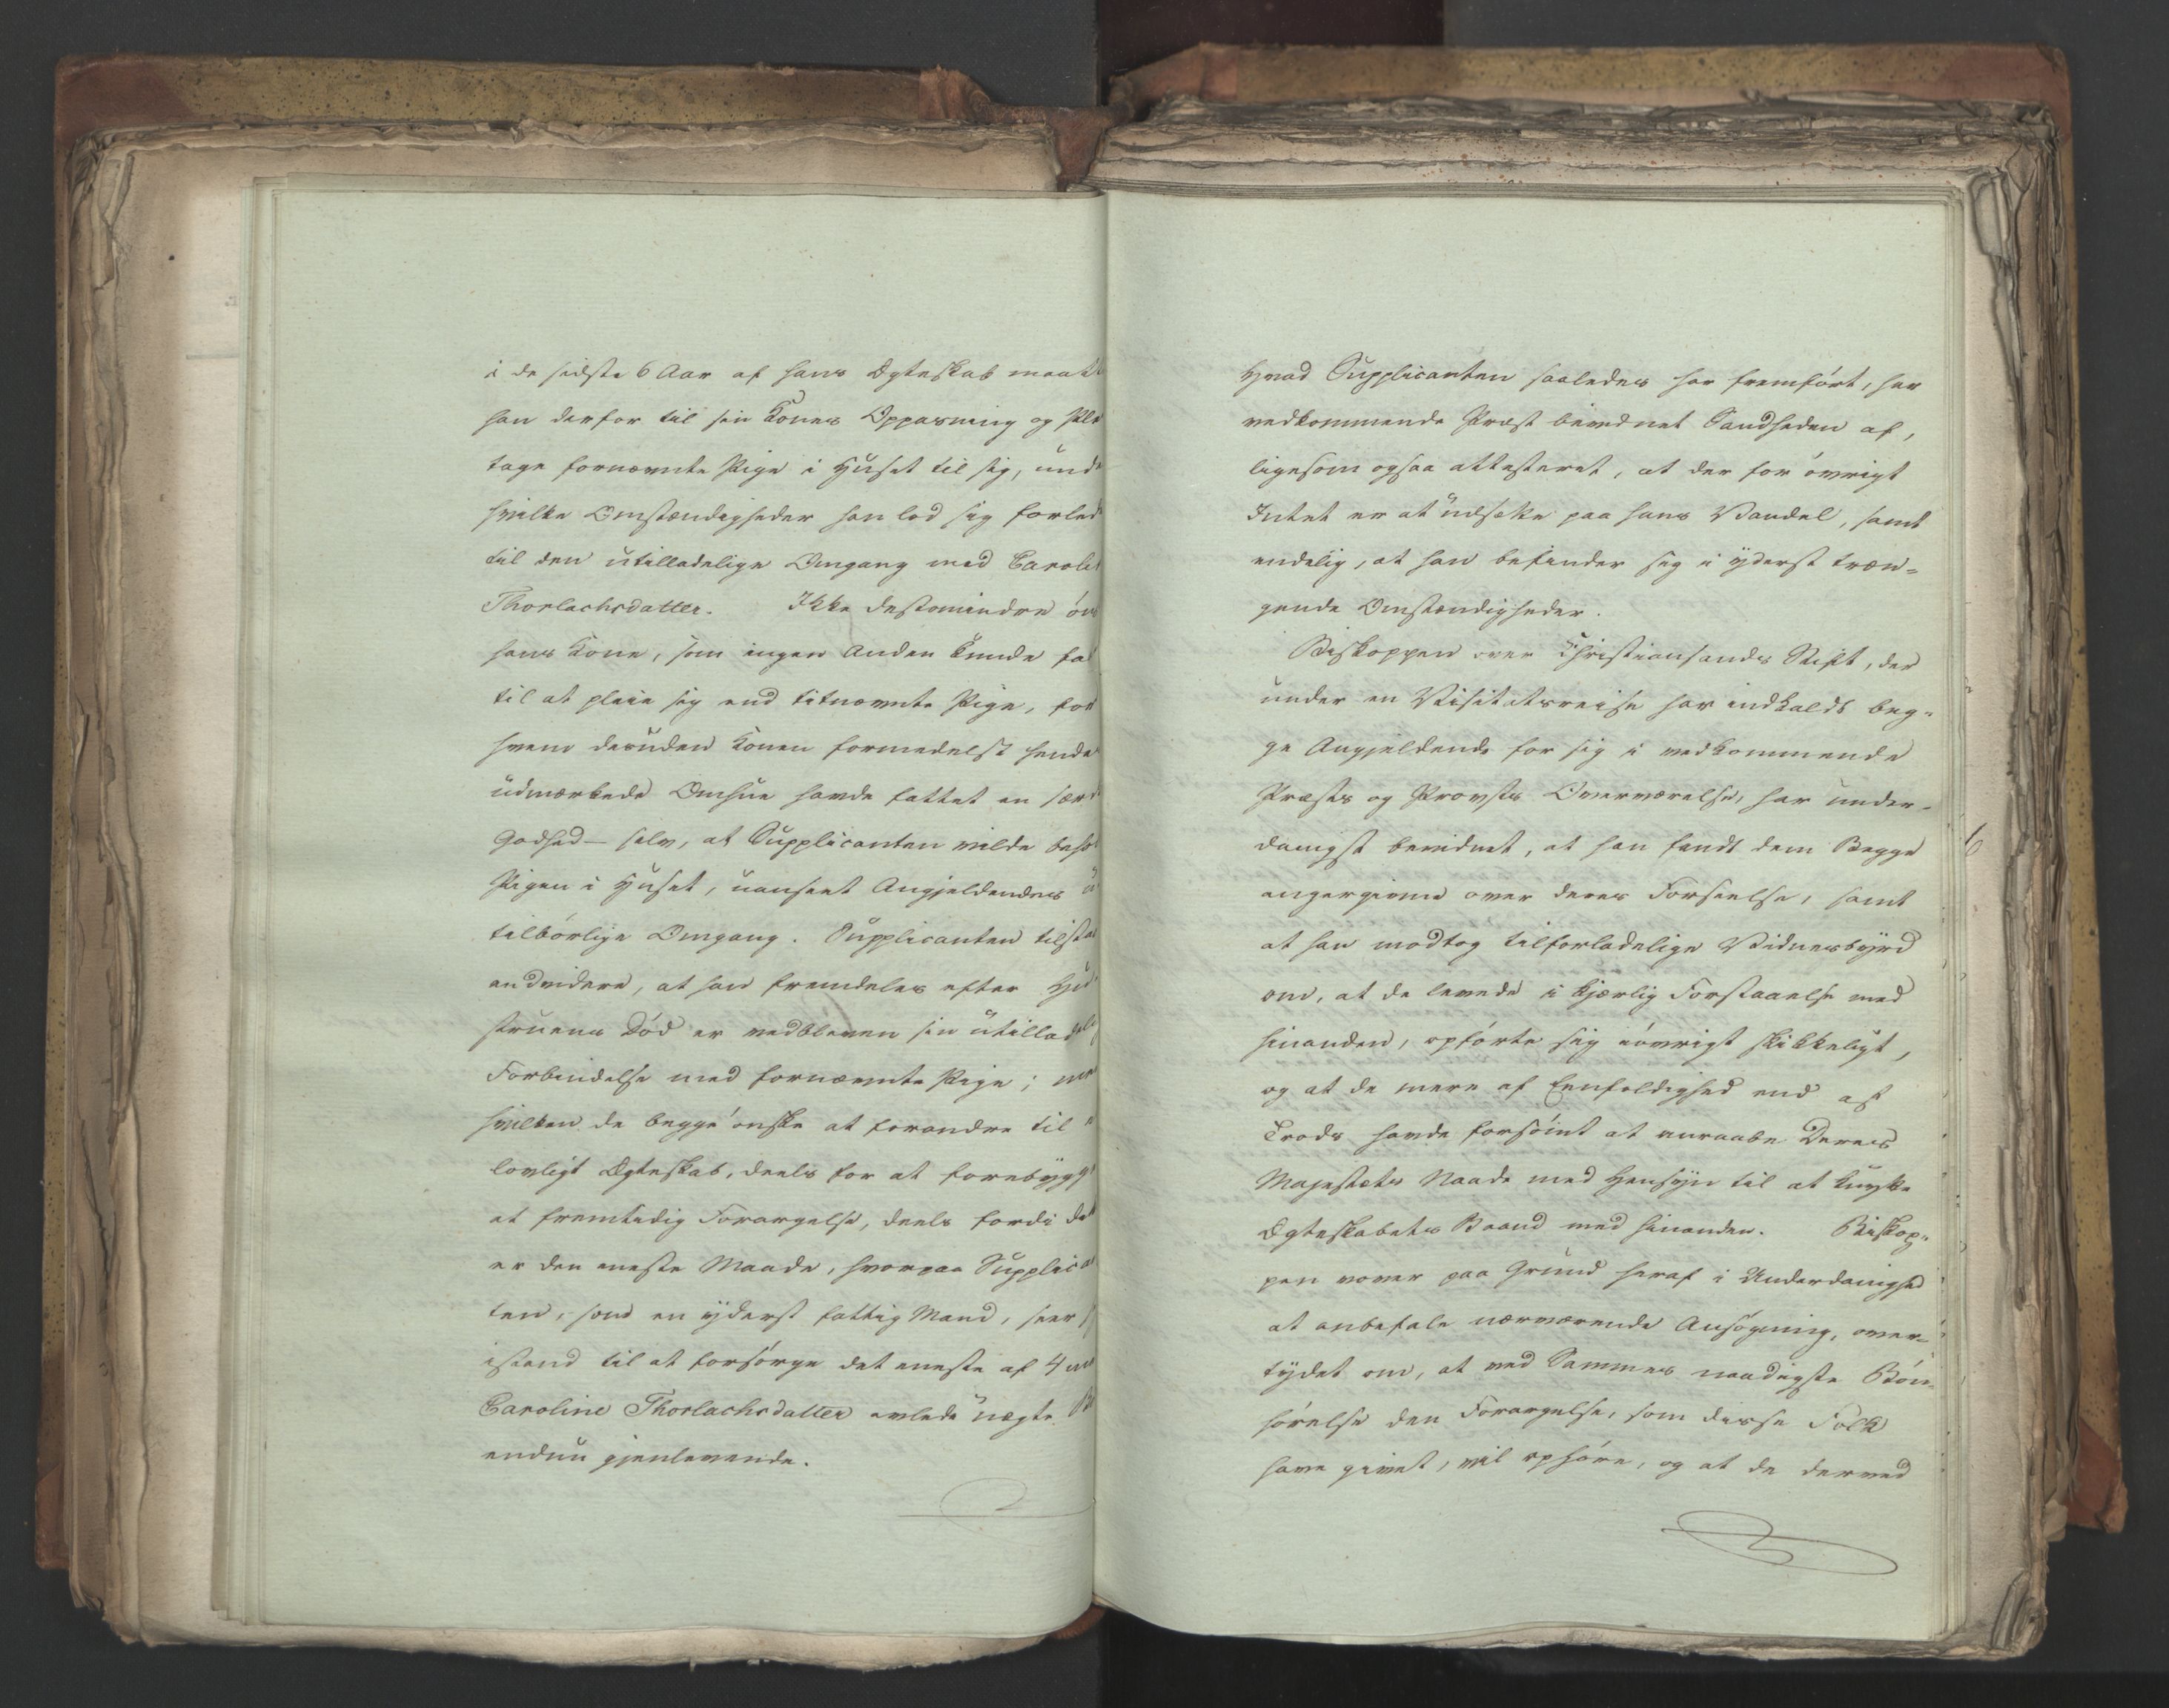 i de sidste 6 Aar af hans Ægteskab maatt
han derfor til sin Kones Oppasning og Ple
tage fornævnte Pige i Huset til sig, unde
hvilke Omstændigheder han lod sig forled
til den utilladelige Omgang med Caroli
Thorlachsdatter. Ikke destomindre øn
hans Kone, som ingen Anden kunde faa
til at pleie sig end bemeldte Pige, for
hvem desuden Konen formedelst hendes
udmærkede Omhue havde fattet en sær
Godhed – selv, at Supplicanten vilde beho
Pigen i Huset, uanseet Angjeldendes u
tilbørlige Omgang. Supplicanten tilstaa
endvidere, at han fremdeles efter Hu
struens Død er vedbleven sin utilladel
Forbindelse med fornævnte Pige; men
hvilken de begge ønske at forandre til e
lovligt Ægteskab, deels for at forebygge
at fremtidig Forargelse, deels fordi det
er den eneste Maade, hvorpaa Supplica
ten, som en yderst fattig Mand, seer s
istand til at forsørge det eneste af 4 m
Caroline Thorlachsdatter avlede uægte B
endnu gjenlevende.
Hvad Supplicanten saaledes har fremført, har
vedkommende Præst bevidnet Sandheden af,
ligesom ogsaa attesteret, at der for øvrigt
Intet er at udsætte paa hans Vandel, samt
endelig, at han befinder sig i yderst træn-
gende Omstændigheder.
Biskoppen over Christiansands Stift, der
under en Visitatsreise har indkaldt beg-
ge Angjeldende for sig i vedkommende
Præsts og Provsts Overværelse, har under-
danigst bevidnet, at han fandt dem Begge
angergivne over deres Forseelse, samt
at han modtog tilforladelige Vidnesbyrd
om, at de levede i kjærlig Forstaaelse med
hinanden, opførte sig iøvrigt skikkeligt,
og at de mere af Eenfoldighed end af
Trods havde forsømt at anraabe Deres
Majestæts Naade med Hensyn til at knytte
Ægteskabets Baand med hinanden. Biskop-
pen vover paa Grund heraf i Underdanighed
at anbefale nærværende Ansøgning, over-
tydet om, at ved Sammes naadigste Bøn-
hørelse den Forargelse, som disse Folk
have givet, vil ophøre, og at de derved